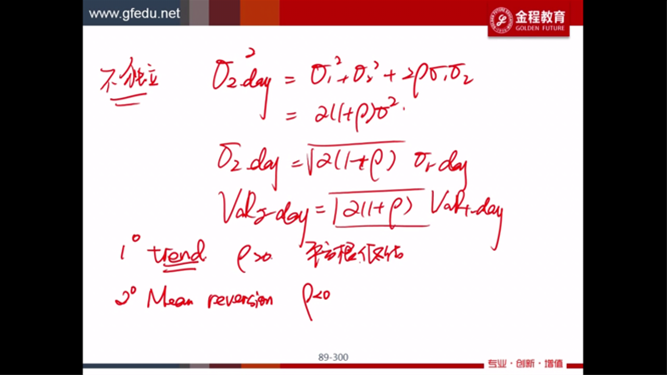 www.gfedu.net
金程教育
GOLDEN FUTURE
不独立 σ²2-day = σ₁² + σ₂² + 2ρσ₁σ₂
= 2(1+ρ)σ²
σ2-day = √2(1+ρ) σ1-day
VaR2-day = √2(1+ρ) VaR1-day
1° trend ρ>0 平方根低估
2° Mean reversion ρ<0
89-300
专业·创新·增值